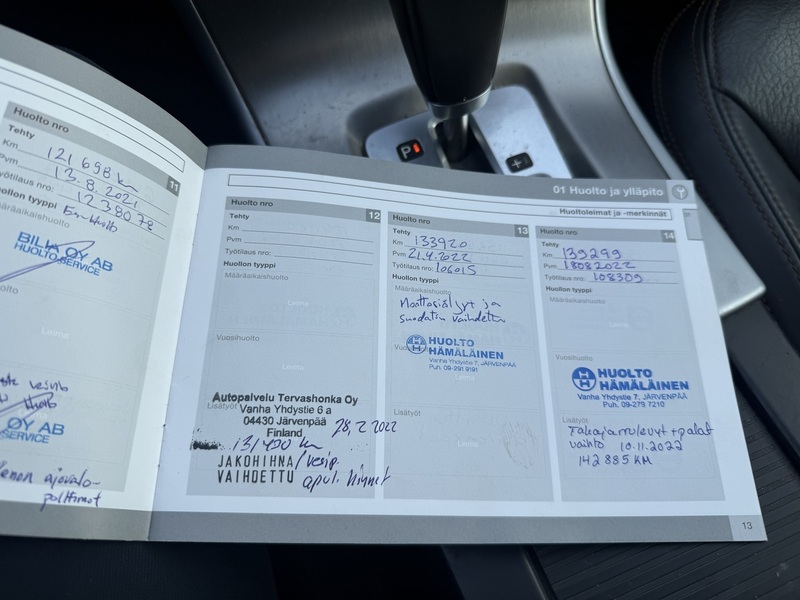 Huolto nro
11
Tehty
Km 121 698 km
Pvm 13.8.2021
Työtilaus nro: 1238078
Huollon tyyppi
Määräaikaishuolto
BILIA OY AB
HUOLTO-SERVICE
OY AB
SERVICE
ajovalo-
polttimot
01 Huolto ja ylläpito
Huoltoleimat ja -merkinnät
Huolto nro
12
Tehty
Km
Pvm
Työtilaus nro:
Huollon tyyppi
Määräaikaishuolto
Leima
Vuosihuolto
Leima
Lisätyöt
Autopalvelu Tervashonka Oy
Vanha Yhdystie 6 a
04430 Järvenpää
Finland
28.2 2022
131490 km
JAKOHIHNA/vesip.
VAIHDETTU apul. hihnat
Huolto nro
13
Tehty
Km 133920
Pvm 21.4.2022
Työtilaus nro: 106015
Huollon tyyppi
Määräaikaishuolto
Moottoriöljyt ja
suodatin vaihdettu
HUOLTO
HÄMÄLÄINEN
Vanha Yhdystie 7, JÄRVENPÄÄ
Puh. 09-291 9191
Leima
Lisätyöt
Huolto nro
14
Tehty
Km 139299
Pvm 18082022
Työtilaus nro: 108309
Huollon tyyppi
Määräaikaishuolto
Leima
Vuosihuolto
HUOLTO
HÄMÄLÄINEN
Vanha Yhdystie 7, JÄRVENPÄÄ
Puh. 09-279 7210
Lisätyöt
Takajarrulevyt + palat
vaihto 10.11.2022
142885 KM
13
P
+